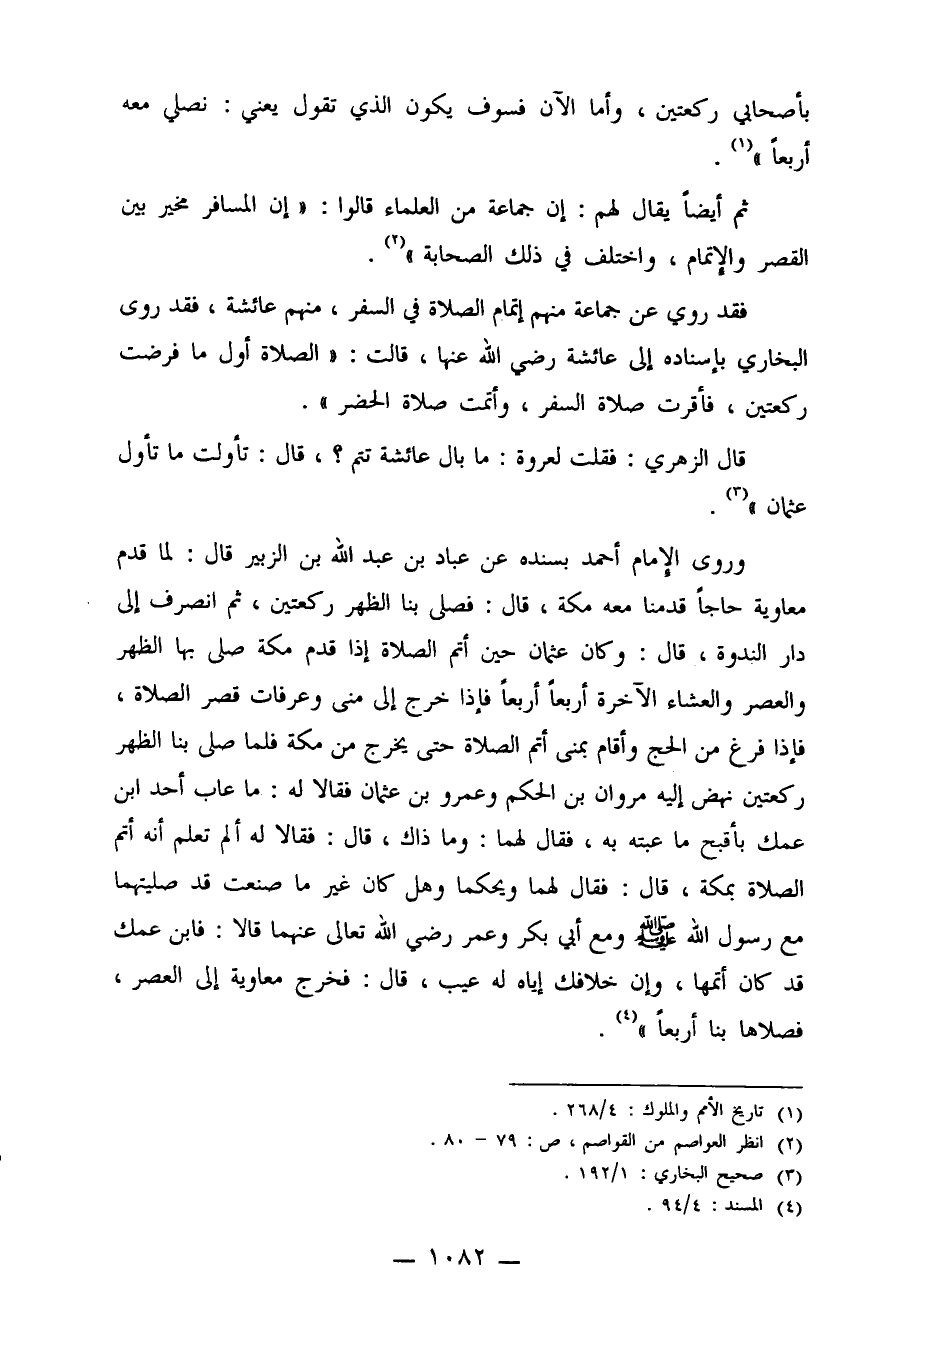 بأصحابي ركعتين ، وأما الآن فسوف يكون الذي تقول يعني : نصلي معه
أربعاً »(١) .
ثم أيضاً يقال لهم : إن جماعة من العلماء قالوا : « إن المسافر مخير بين
القصر والإتمام ، واختلف في ذلك الصحابة »(٢) .
فقد روي عن جماعة منهم إتمام الصلاة في السفر ، منهم عائشة ، فقد روى
البخاري بإسناده إلى عائشة رضي الله عنها ، قالت : « الصلاة أول ما فرضت
ركعتين ، فأقرت صلاة السفر ، وأتمت صلاة الحضر » .
قال الزهري : فقلت لعروة : ما بال عائشة تتم ؟ ، قال : تأولت ما تأول
عثمان »(٣) .
وروى الإمام أحمد بسنده عن عباد بن عبد الله بن الزبير قال : لما قدم
معاوية حاجاً قدمنا معه مكة ، قال : فصلى بنا الظهر ركعتين ، ثم انصرف إلى
دار الندوة ، قال : وكان عثمان حين أتم الصلاة إذا قدم مكة صلى بها الظهر
والعصر والعشاء الآخرة أربعاً أربعاً فإذا خرج إلى منى وعرفات قصر الصلاة ،
فإذا فرغ من الحج وأقام بمنى أتم الصلاة حتى يخرج من مكة فلما صلى بنا الظهر
ركعتين نهض إليه مروان بن الحكم وعمرو بن عثمان فقالا له : ما عاب أحد ابن
عمك بأقبح ما عبته به ، فقال لهما : وما ذاك ، قال : فقالا له ألم تعلم أنه أتم
الصلاة بمكة ، قال : فقال لهما ويحكما وهل كان غير ما صنعت قد صليتهما
مع رسول الله ﷺ ومع أبي بكر وعمر رضي الله تعالى عنهما قالا : فابن عمك
قد كان أتمها ، وإن خلافك إياه له عيب ، قال : فخرج معاوية إلى العصر ،
فصلاها بنا أربعاً »(٤) .
(١) تاريخ الأمم والملوك : ٢٦٨/٤ .
(٢) انظر العواصم من القواصم ، ص : ٧٩ – ٨٠ .
(٣) صحيح البخاري : ١٩٢/١ .
(٤) المسند : ٩٤/٤ .
— ١٠٨٢ —